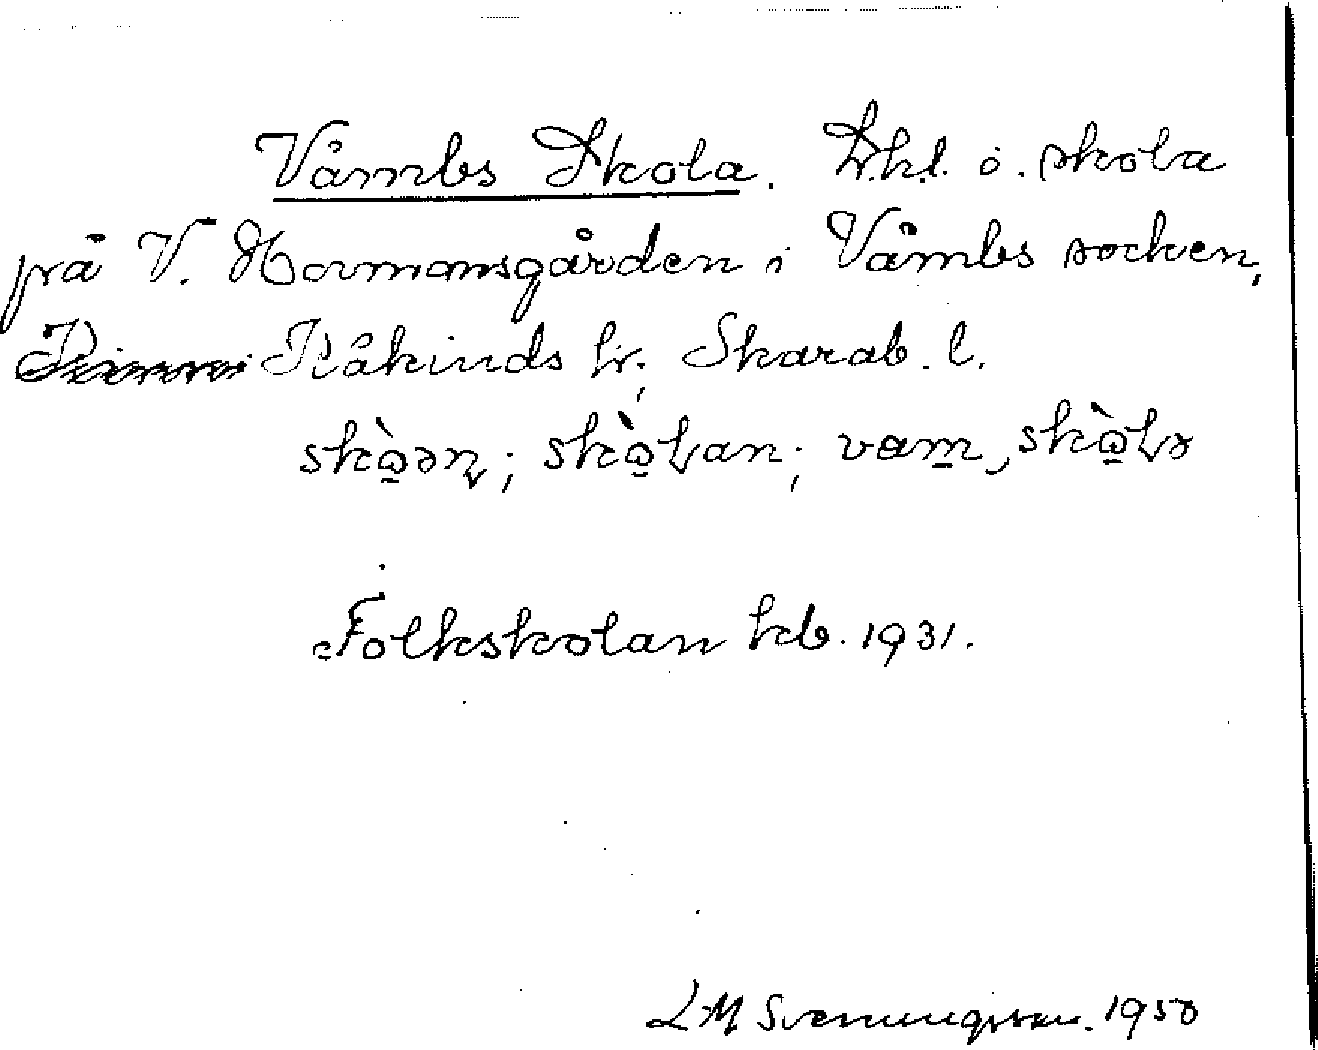 Våmbs Skola. Lkl. o. skola
på V. Hormansgården i Våmbs socken,
Kåkinds hr, Skarab. l.
skò̱ən; skò̱ɫan; vam̱, skò̱ɫə
Folkskolan kb. 1931.
L M Svenungsson. 1950